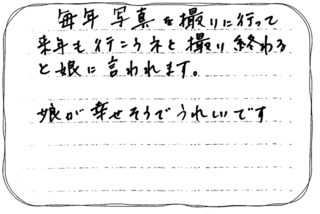 毎年写真を撮りに行って
来年も行こうネと撮り終わる
と娘に言われます。
娘が幸せそうでうれしいです